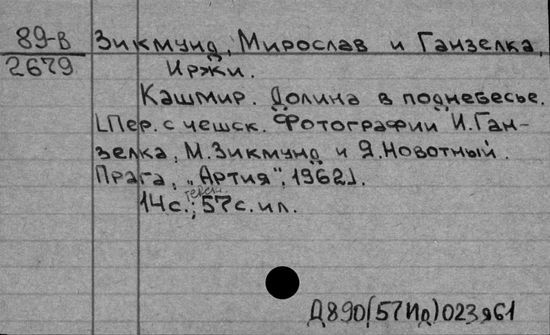 89-в
2679
Зикмунд, Мирослав и Ганзелка,
Иржи.
Кашмир. Долина в поднебесье.
[Пер. с чешск. Фотографии И. Ган-
зелка, М. Зикмунд и Я. Новотный.
Прага, "Артия", 1962].
14 с.; 57 с. ил.
Д890(57Ид)023я61